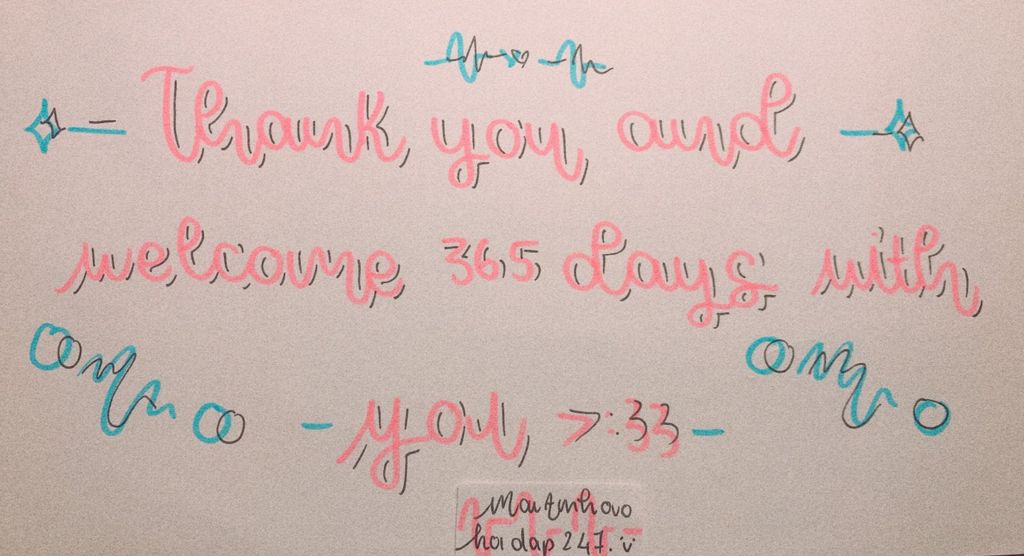 Thank you and
welcome 365 days with
- you >:33 -
hoidap247.